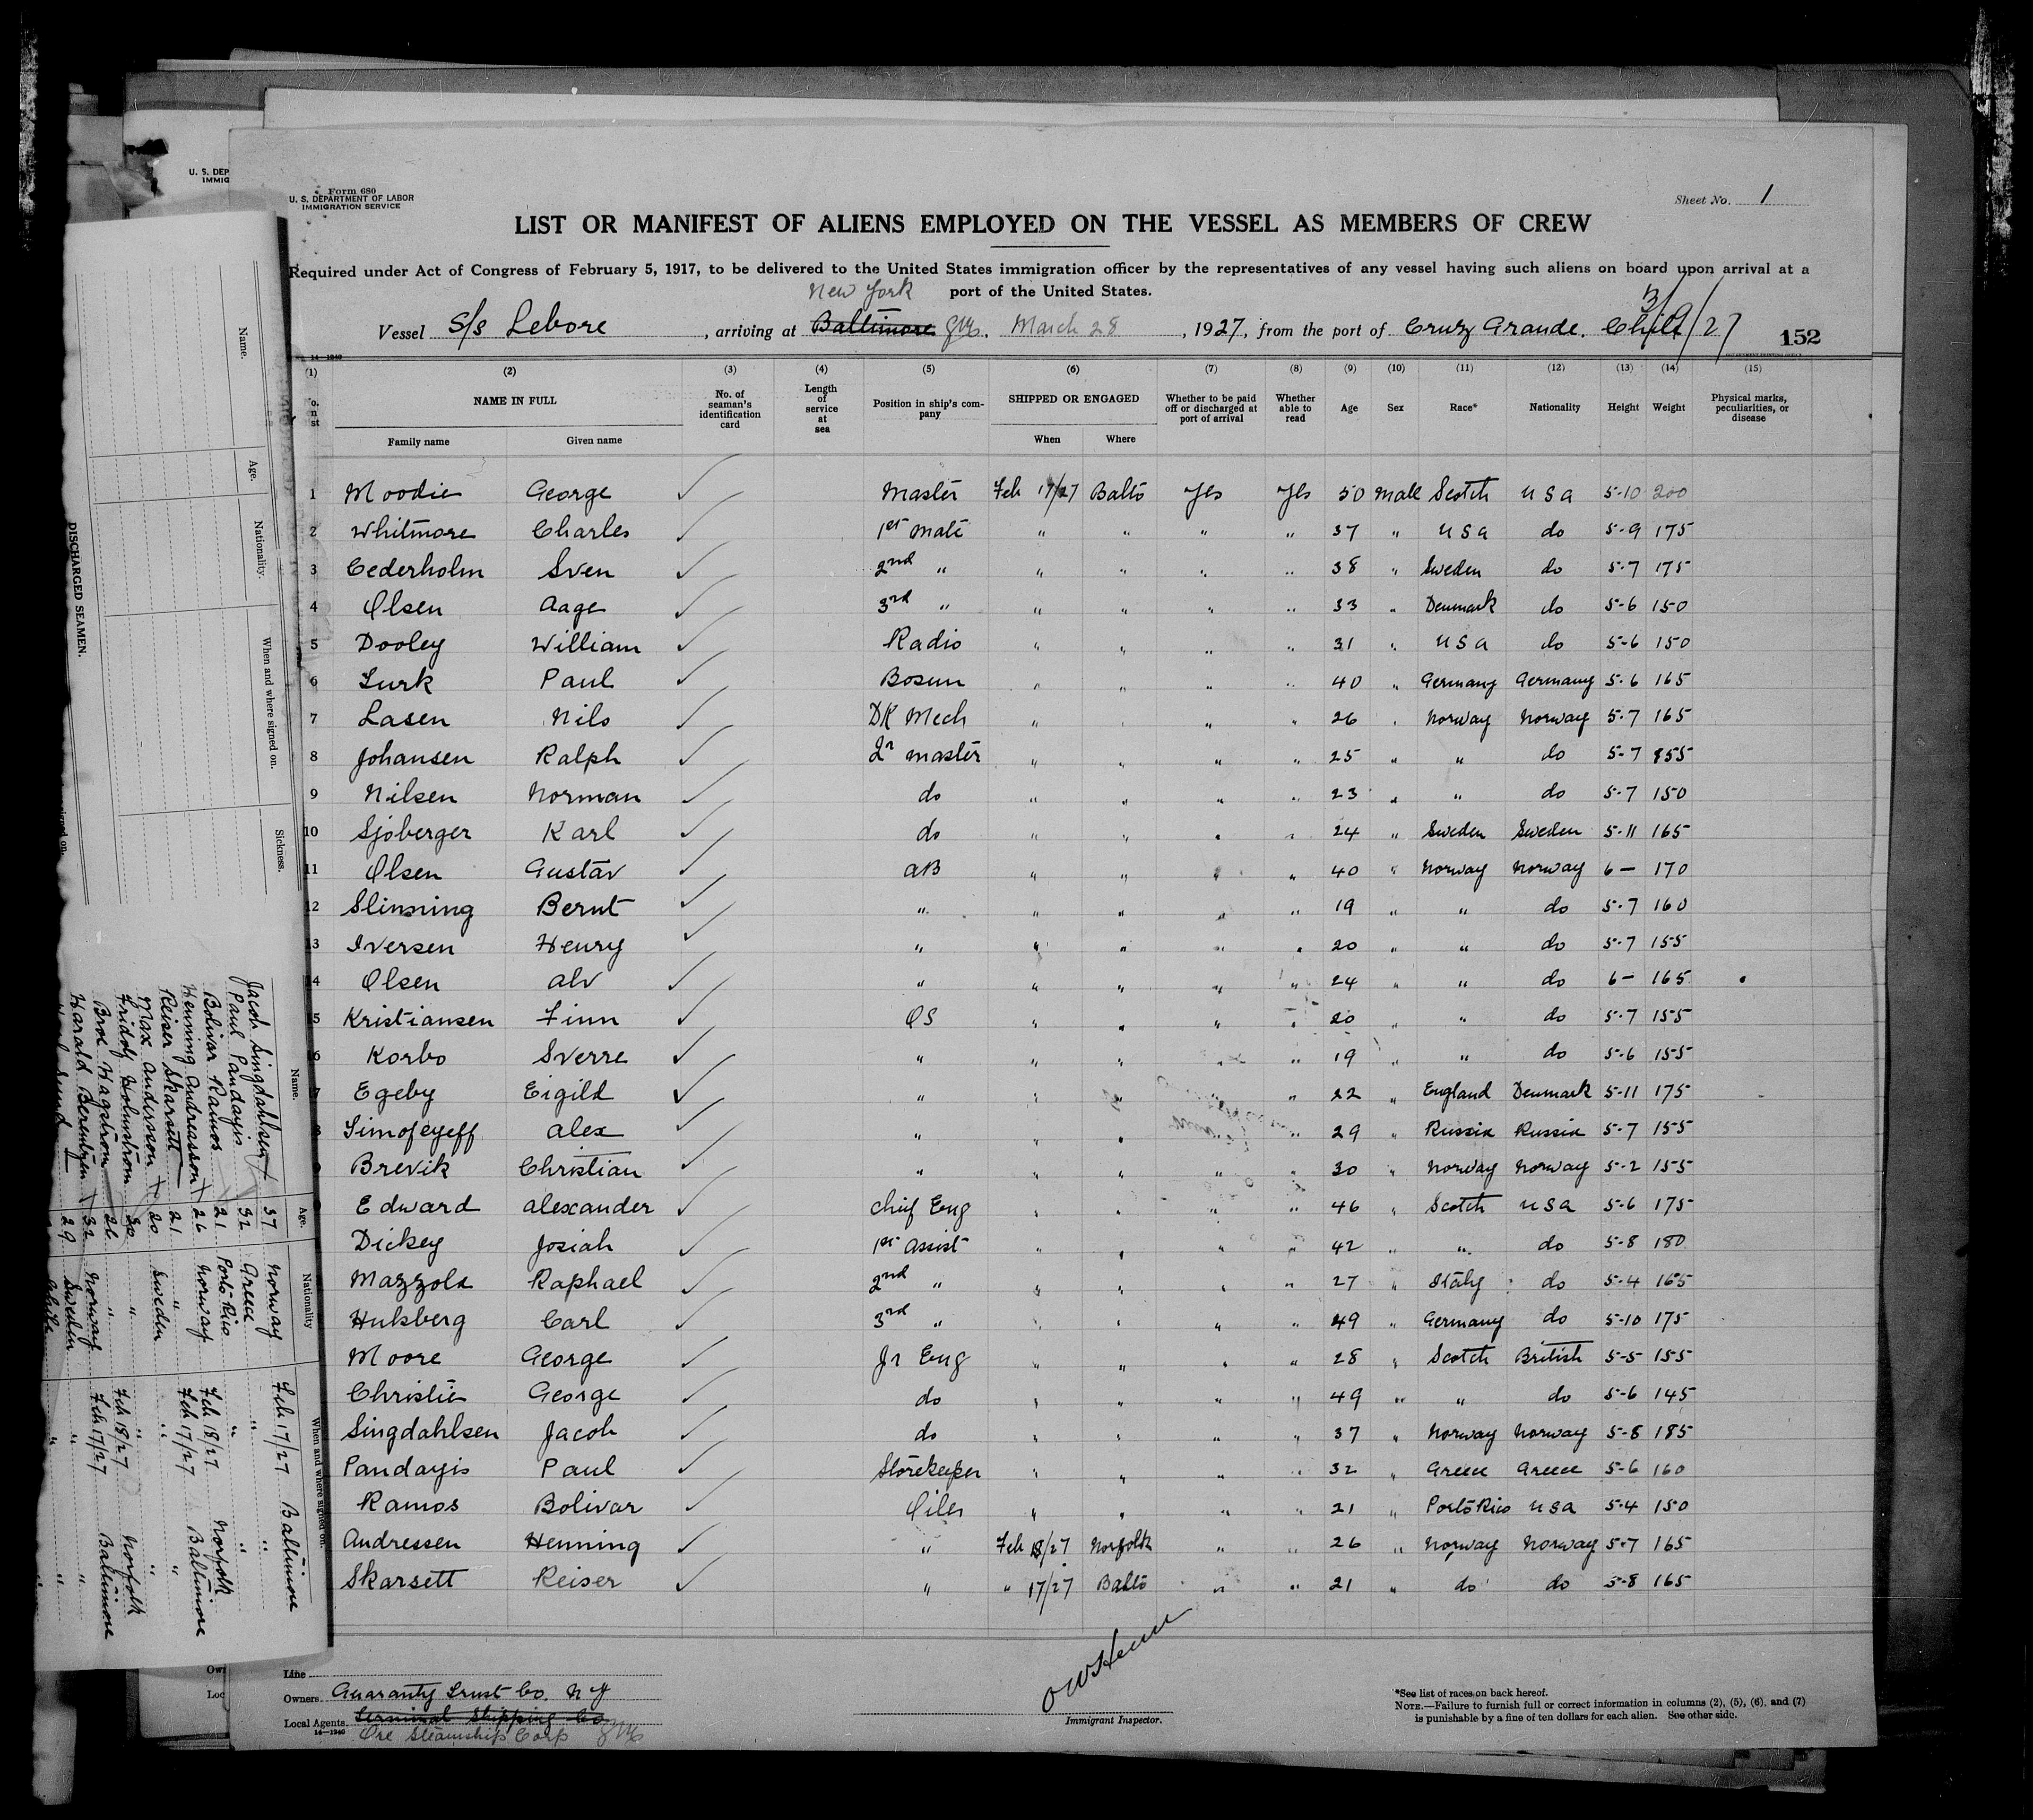 U. S. DEP
IMMIG
Form 680
U. S. DEPARTMENT OF LABOR
IMMIGRATION SERVICE
Sheet No. 1
LIST OR MANIFEST OF ALIENS EMPLOYED ON THE VESSEL AS MEMBERS OF CREW
Required under Act of Congress of February 5, 1917, to be delivered to the United States immigration officer by the representatives of any vessel having such aliens on board upon arrival at a
port of the United States.
New York
3/9/27
Vessel S/s Lebore, arriving at Baltimore March 28, 1927, from the port of Cruz Grande. Chile
152
14—1240
(1) (2) (3) (4) (5) (6) (7) (8) (9) (10) (11) (12) (13) (14) (15)
NAME IN FULL No. of seaman's identification card Length of service at sea Position in ship's company SHIPPED OR ENGAGED Whether to be paid off or discharged at port of arrival Whether able to read Age Sex Race* Nationality Height Weight Physical marks, peculiarities, or disease
Family name Given name When Where
1 Moodie George ✓ Master Feb 17/27 Balto Yes Yes 50 Male Scotch USA 5-10 200
2 Whitmore Charles ✓ 1st Mate " " " " 37 " USA do 5-9 175
3 Cederholm Sven ✓ 2nd " " " " " 38 " Sweden do 5-7 175
4 Olsen Aage ✓ 3rd " " " " " 33 " Denmark do 5-6 150
5 Dooley William ✓ Radio " " " " 31 " USA do 5-6 150
6 Lurk Paul ✓ Bosun " " " " 40 " Germany Germany 5-6 165
7 Lasen Nils ✓ DK Mech " " " " 26 " Norway Norway 5-7 165
8 Johansen Ralph ✓ Qr master " " " " 25 " " do 5-7 155
9 Nilsen Norman ✓ do " " " " 23 " " do 5-7 150
10 Sjoberger Karl ✓ do " " " " 24 " Sweden Sweden 5-11 165
11 Olsen Gustav ✓ AB " " " " 40 " Norway Norway 6- 170
12 Slinning Bernt ✓ " " " " " 19 " " do 5-7 160
13 Iversen Henry ✓ " " " " " 20 " " do 5-7 155
14 Olsen Alv ✓ " " " " " 24 " " do 6- 165
15 Kristiansen Finn ✓ OS " " " " 20 " " do 5-7 155
16 Korbo Sverre ✓ " " " " " 19 " " do 5-6 155
17 Egeby Eigild ✓ " " " " " 22 " England Denmark 5-11 175
18 Simofeyeff Alex ✓ " " " " " 29 " Russia Russia 5-7 155
19 Brevik Christian ✓ " " " " " 30 " Norway Norway 5-2 155
Edward Alexander ✓ Chief Eng " " " " 46 " Scotch USA 5-6 175
Dickey Josiah ✓ 1st Assist " " " " 42 " " do 5-8 180
Mazzola Raphael ✓ 2nd " " " " " 27 " Italy do 5-4 165
Hulsberg Carl ✓ 3rd " " " " " 49 " Germany do 5-10 175
Moore George ✓ Jr Eng " " " " 28 " Scotch British 5-5 155
Christie George ✓ do " " " " 49 " " do 5-6 145
Singdahlsen Jacob ✓ do " " " " 37 " Norway Norway 5-8 185
Pandayis Paul ✓ Storekeeper " " " " 32 " Greece Greece 5-6 160
Ramos Bolivar ✓ Oiler " " " " 21 " Porto Rico USA 5-4 150
Andressen Henning ✓ " Feb 18/27 Norfolk " " 26 " Norway Norway 5-7 165
Skarsett Reiser ✓ " " 17/27 Balto " " 21 " do do 5-8 165
Line
Owners Guaranty Trust Co. N Y
Local Agents Terminal Shipping Co
14—1240
Ore Steamship Corp
Immigrant Inspector.
*See list of races on back hereof.
NOTE.—Failure to furnish full or correct information in columns (2), (5), (6), and (7)
is punishable by a fine of ten dollars for each alien. See other side.
Name. Age. Nationality. When and where signed on. Sickness.
DISCHARGED SEAMEN.
Name. Age. Nationality When and where signed on.
Jacob Singdahlsen 37 Norway Feb 17/27 Baltimore
Paul Pandayis 32 Greece " "
Bolivar Ramos 21 Porto Rico " "
Henning Andreasson 26 Norway Feb 18/27 Norfolk
Reiser Skarsett 21 " Feb 17/27 Baltimore
Max Andersson 20 Sweden " "
Fridolf Holmstrom 32 " " "
Broe Hagstrom 26 " Feb 18/27 Norfolk
Harald Berentzen 32 Norway Feb 17/27 Baltimore
29 Sweden " "